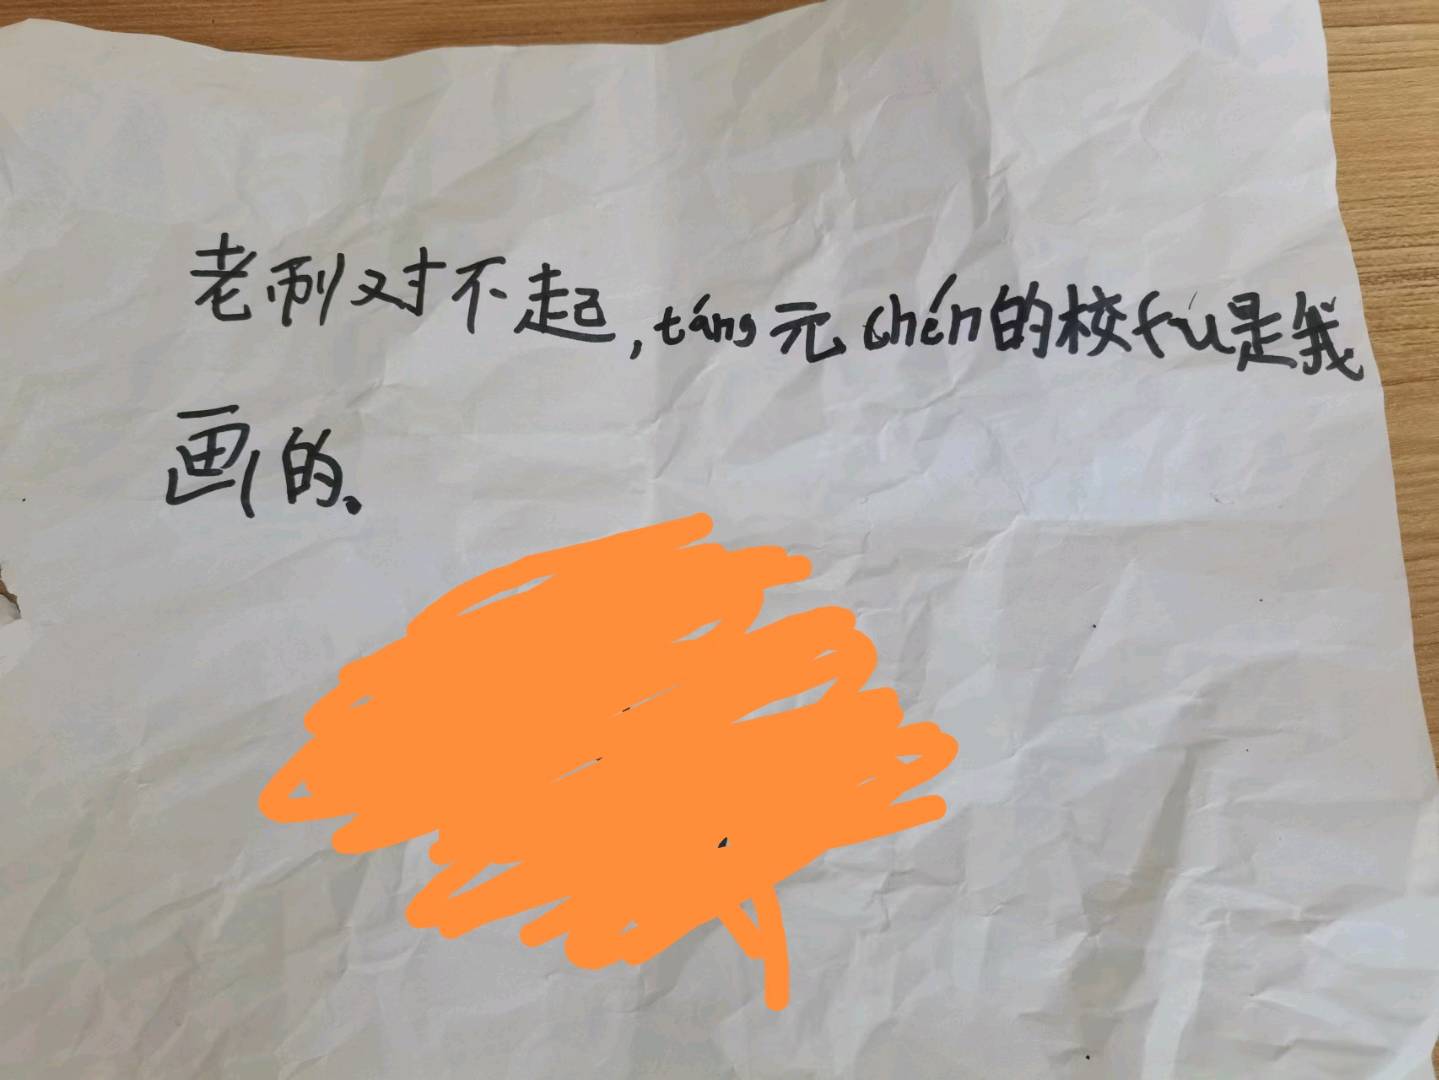 老师对不起,táng元chén的校fú是我
画的、